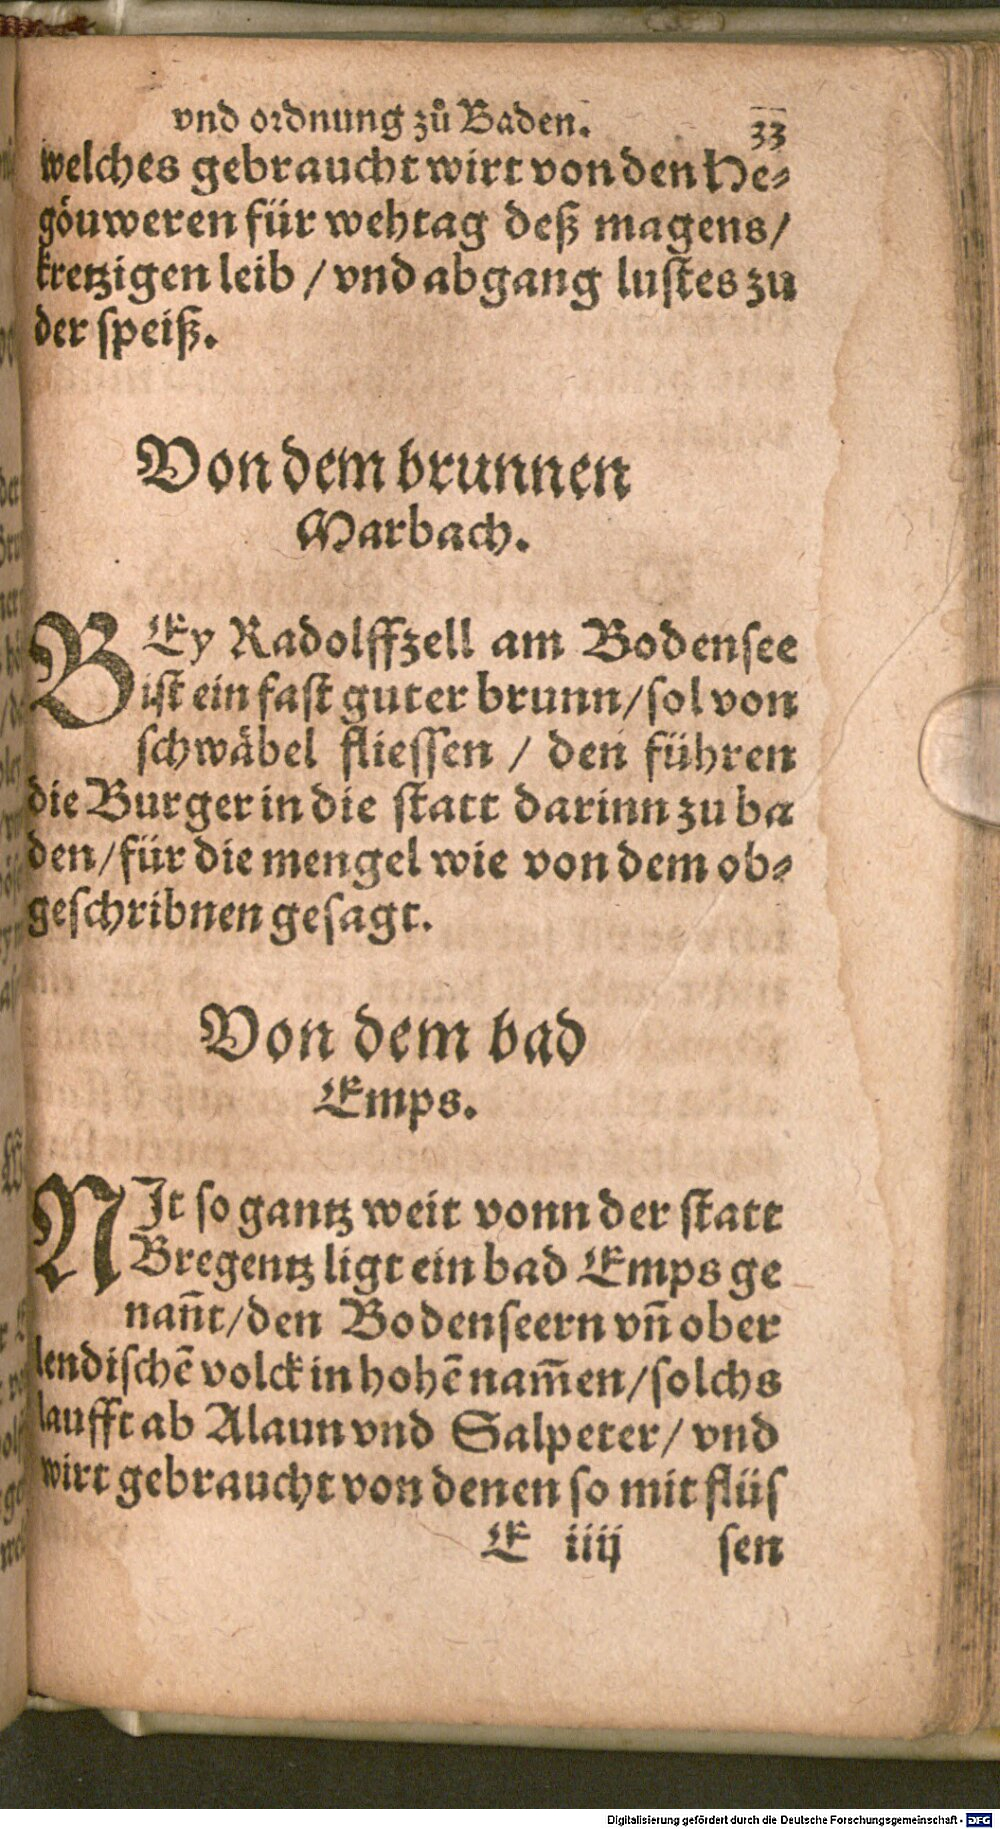 vnd ordnung zů Baden. 33
welches gebraucht wirt von den He⸗
göuweren für wehtag deß magens/
kretzigen leib / vnd abgang lustes zu
der speiß.
Von dem brunnen
Marbach.
BEy Radolffzell am Bodensee
ist ein fast guter brunn/sol von
schwäbel fliessen / den führen
die Burger in die statt darinn zu ba
den/für die mengel wie von dem ob⸗
geschribnen gesagt.
Von dem bad
Emps.
NJt so gantz weit vonn der statt
Bregentz ligt ein bad Emps ge
nañt/den Bodenseern vñ ober
lendischẽ volck in hohẽ nam̃en/solchs
laufft ab Alaun vnd Salpeter/ vnd
wirt gebraucht von denen so mit flüs
E iiij sen
Digitalisierung gefördert durch die Deutsche Forschungsgemeinschaft - DFG